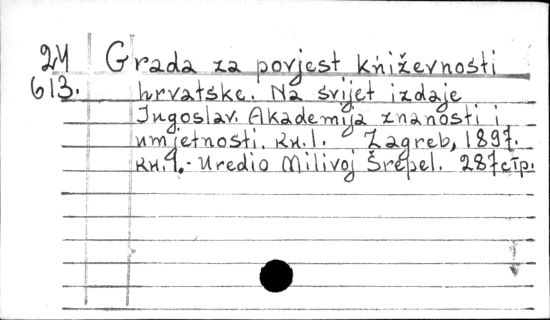 24 Grada za povjest književnosti
613. hrvatske. Na svijet izdaje
Jugoslav. Akademija znanosti i
umjetnosti. кн. 1. Zagreb, 1897.
кн. 1.- Uredio Milivoj Šrepel. 287 стр.